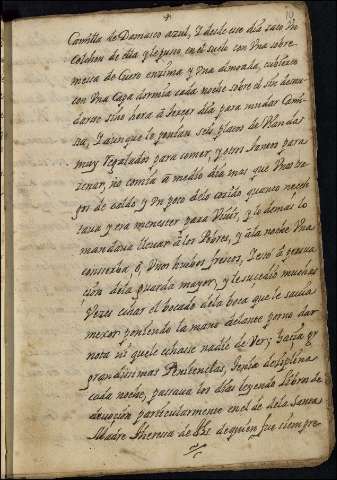 Camilla de Damasco azul, I desde ese dia saco Un
Colchon de ella y le puso en el suelo con Una sobre
mesa de Cuero enzima y Una almoada, cubierto
con Una Capa dormia cada noche sobre el sin desnu
darse sino hera a terzer dia para mudar Cami
sa, I aunque le ponian seis platos de Viandas
muy Regalados para comer, y otros tantos para
zenar, no comia a medio dia mas que Unos tra
gos de caldo y Un poco delo cozido quanto nezesi
tava y era menester para Vivir, y lo demas lo
mandava llevar a los Pobres, y a la noche Una
conserba, o, Unos huebos frescos, I esto a persua
ción dela guarda mayor, y le suzedio muchas
Vezes echar el bocado dela boca que le savia
mexor poniendo la mano delante porno dar
nota ni que lo echase nadie de Ver; hazia
grandissimas Penitenzias, tenia disziplina
cada noche, passava los dias leyendo libros de
devozion particularmente en el de dela Santa
Madre Theresa de Ihs de quien fue siempre